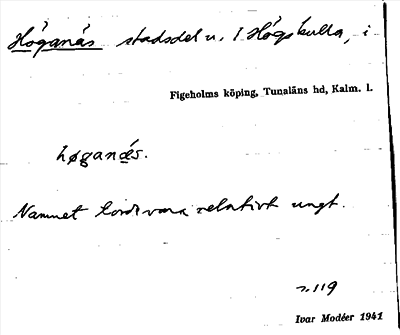 Höganäs stadsdel n. I Högskulla, i
Figeholms köping, Tunaläns hd, Kalm. l.
høganäs.
Namnet torde vara relativt ungt.
119
Ivar Modéer 1941